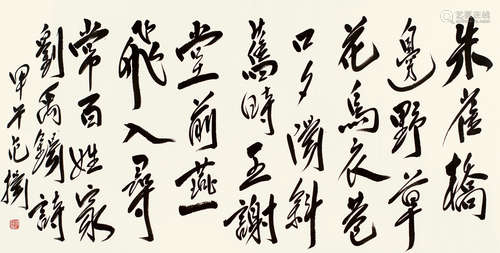 朱雀橋
邊野草
花烏衣巷
口夕陽斜
舊時王謝
堂前燕
飛入尋
常百姓家
劉禹錫詩
甲午范揚